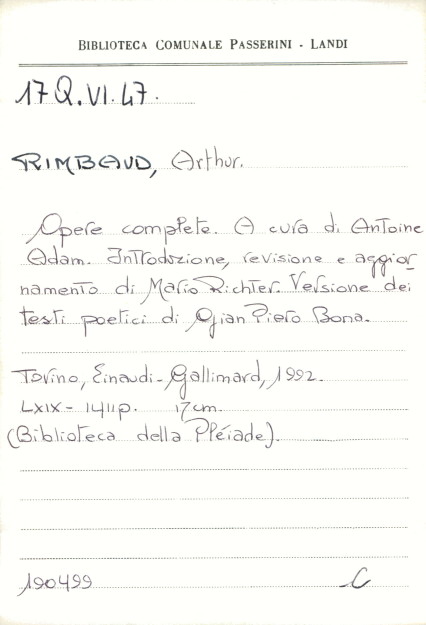 BIBLIOTECA COMUNALE PASSERINI - LANDI
17 Q.VI.47.
RIMBAUD, Arthur.
Opere complete. A cura di Antoine
Adam. Introduzione, revisione e aggior
namento di Mario Richter. Versione dei
testi poetici di Gian Piero Bona.
Torino, Einaudi-Gallimard, 1992.
LXIX - 1411p. 17cm.
(Biblioteca della Plèiade).
190499 C